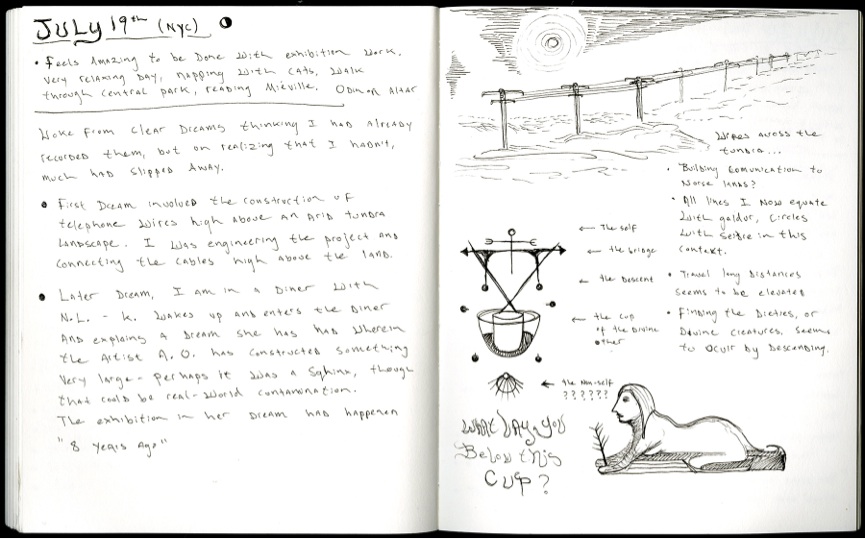 JULY 19th (NYC)
• Feels Amazing to be Done With exhibition Work.
Very relaxing Day, napping With cats, Walk
through central park, reading Miéville. Odin on Altar
Woke From Clear Dreams thinking I had Already
recorded them, but on realizing that I hadn't,
much had slipped Away.
• First Dream involved the construction of
telephone Wires high above an Arid tundra
Landscape. I Was engineering the project And
connecting the cables high above the land.
• Later Dream, I am in a Diner With
N.L. - K. Wakes up and enters the Diner
And explains a Dream she has had Wherein
the Artist A.O. has constructed something
Very large - perhaps it Was a Sphinx, though
that could be real-World contamination.
The exhibition in her Dream had happened
"8 years Ago"
Wires across the
tundra...
• Building Comunication to
Norse lands?
• All lines I Now equate
With galdor, circles
With seiðr in this
contaxt.
• Travel long Distances
seems to be elevated
• Finding the Dieties, or
Divine creatures, seems
to Occur by Descending.
← The self
← the bridge
← the Descent
← the Cup
of the Divine
other
← the Non-self
??????
What Lay you
Below this
Cup?